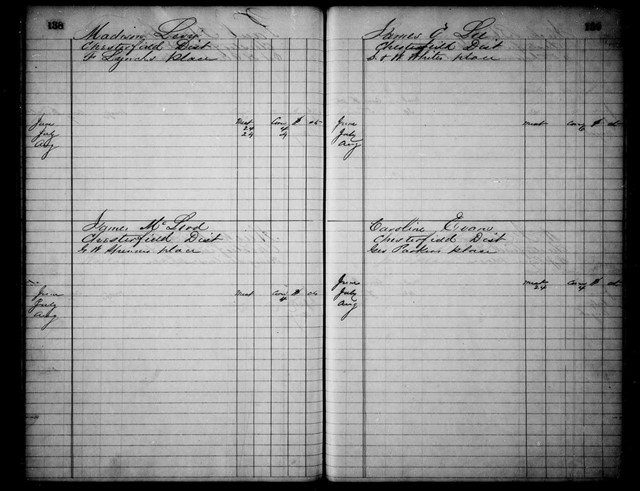 138
Madison Levy
Chesterfield Dist
F Lynchs place
Meat Corn $ cts
June 24 4
July 24 4
Aug
James McLeod
Chesterfield Dist
G W Spencers place
Meat Corn $ cts
June 4
July
Aug
James G. Lee
Chesterfield Dist
D. & W Whites place
Meat Corn $ cts
June 6
July
Aug
Caroline Evans
Chesterfield Dist
Geo Parkers place
June
Meat Corn $ cts
July 24 4
Aug